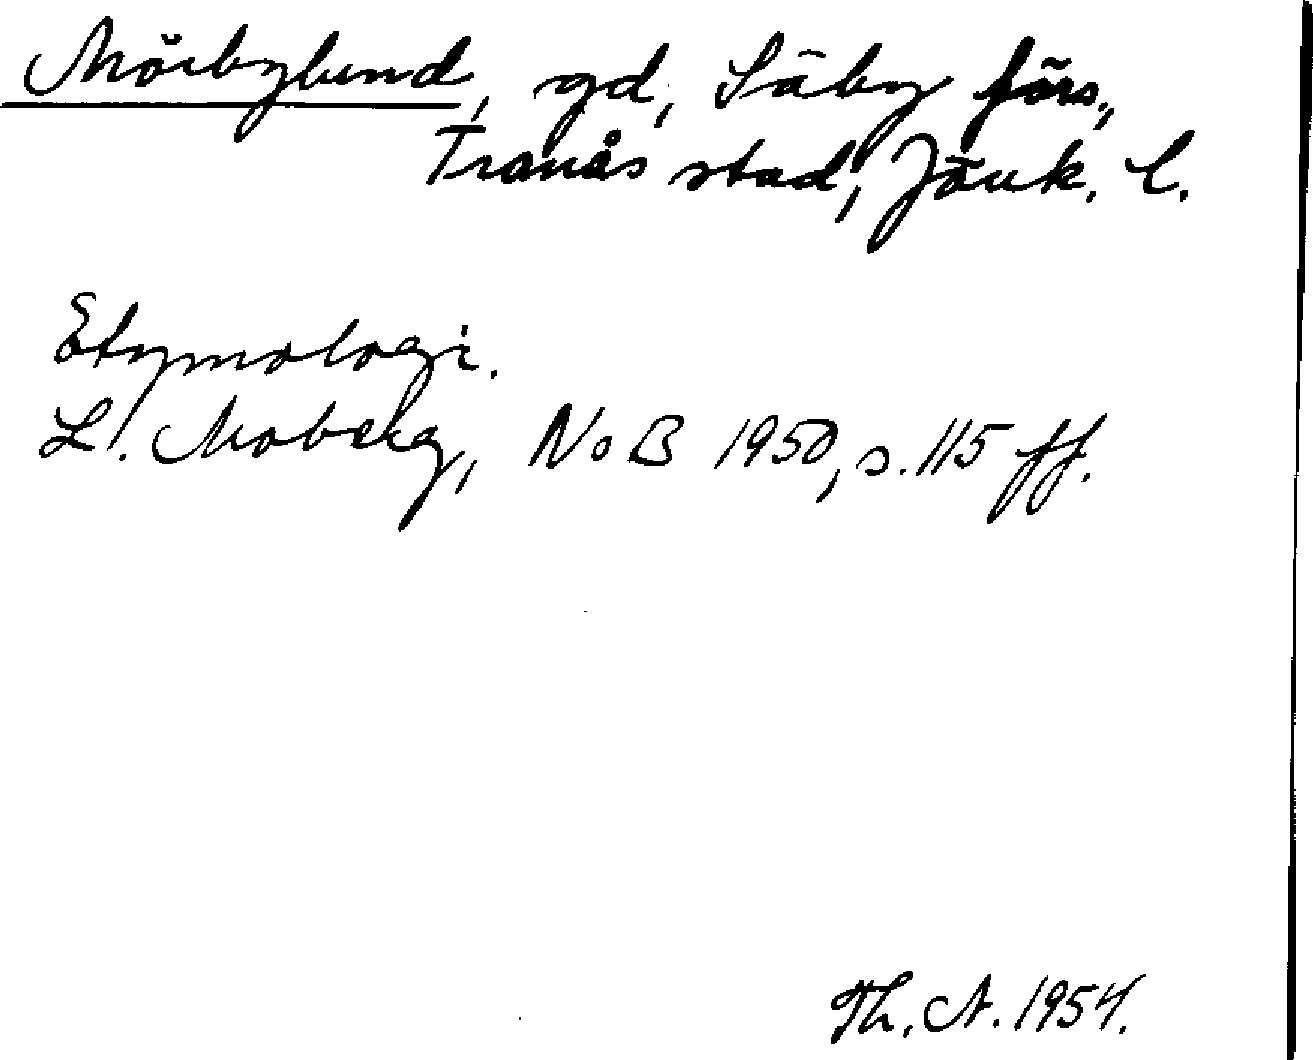 Mörbylund, gd, Säby förs.,
Tranås stad, Jönk. l.
Etymologi.
L. Moberg, NoB 1950, s. 115 ff.
Th. A. 1954.